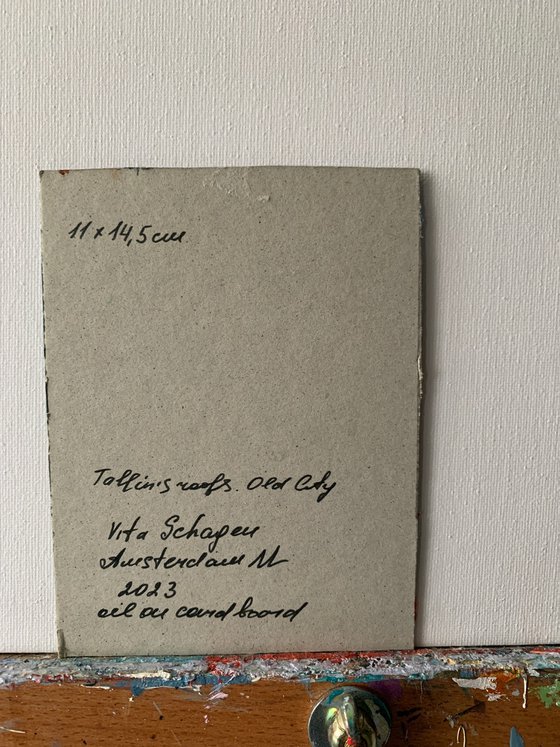 11 x 14,5 cm
Tallin's roofs. Old City
Vita Schagen
Amsterdam NL
2023
oil on cardboard